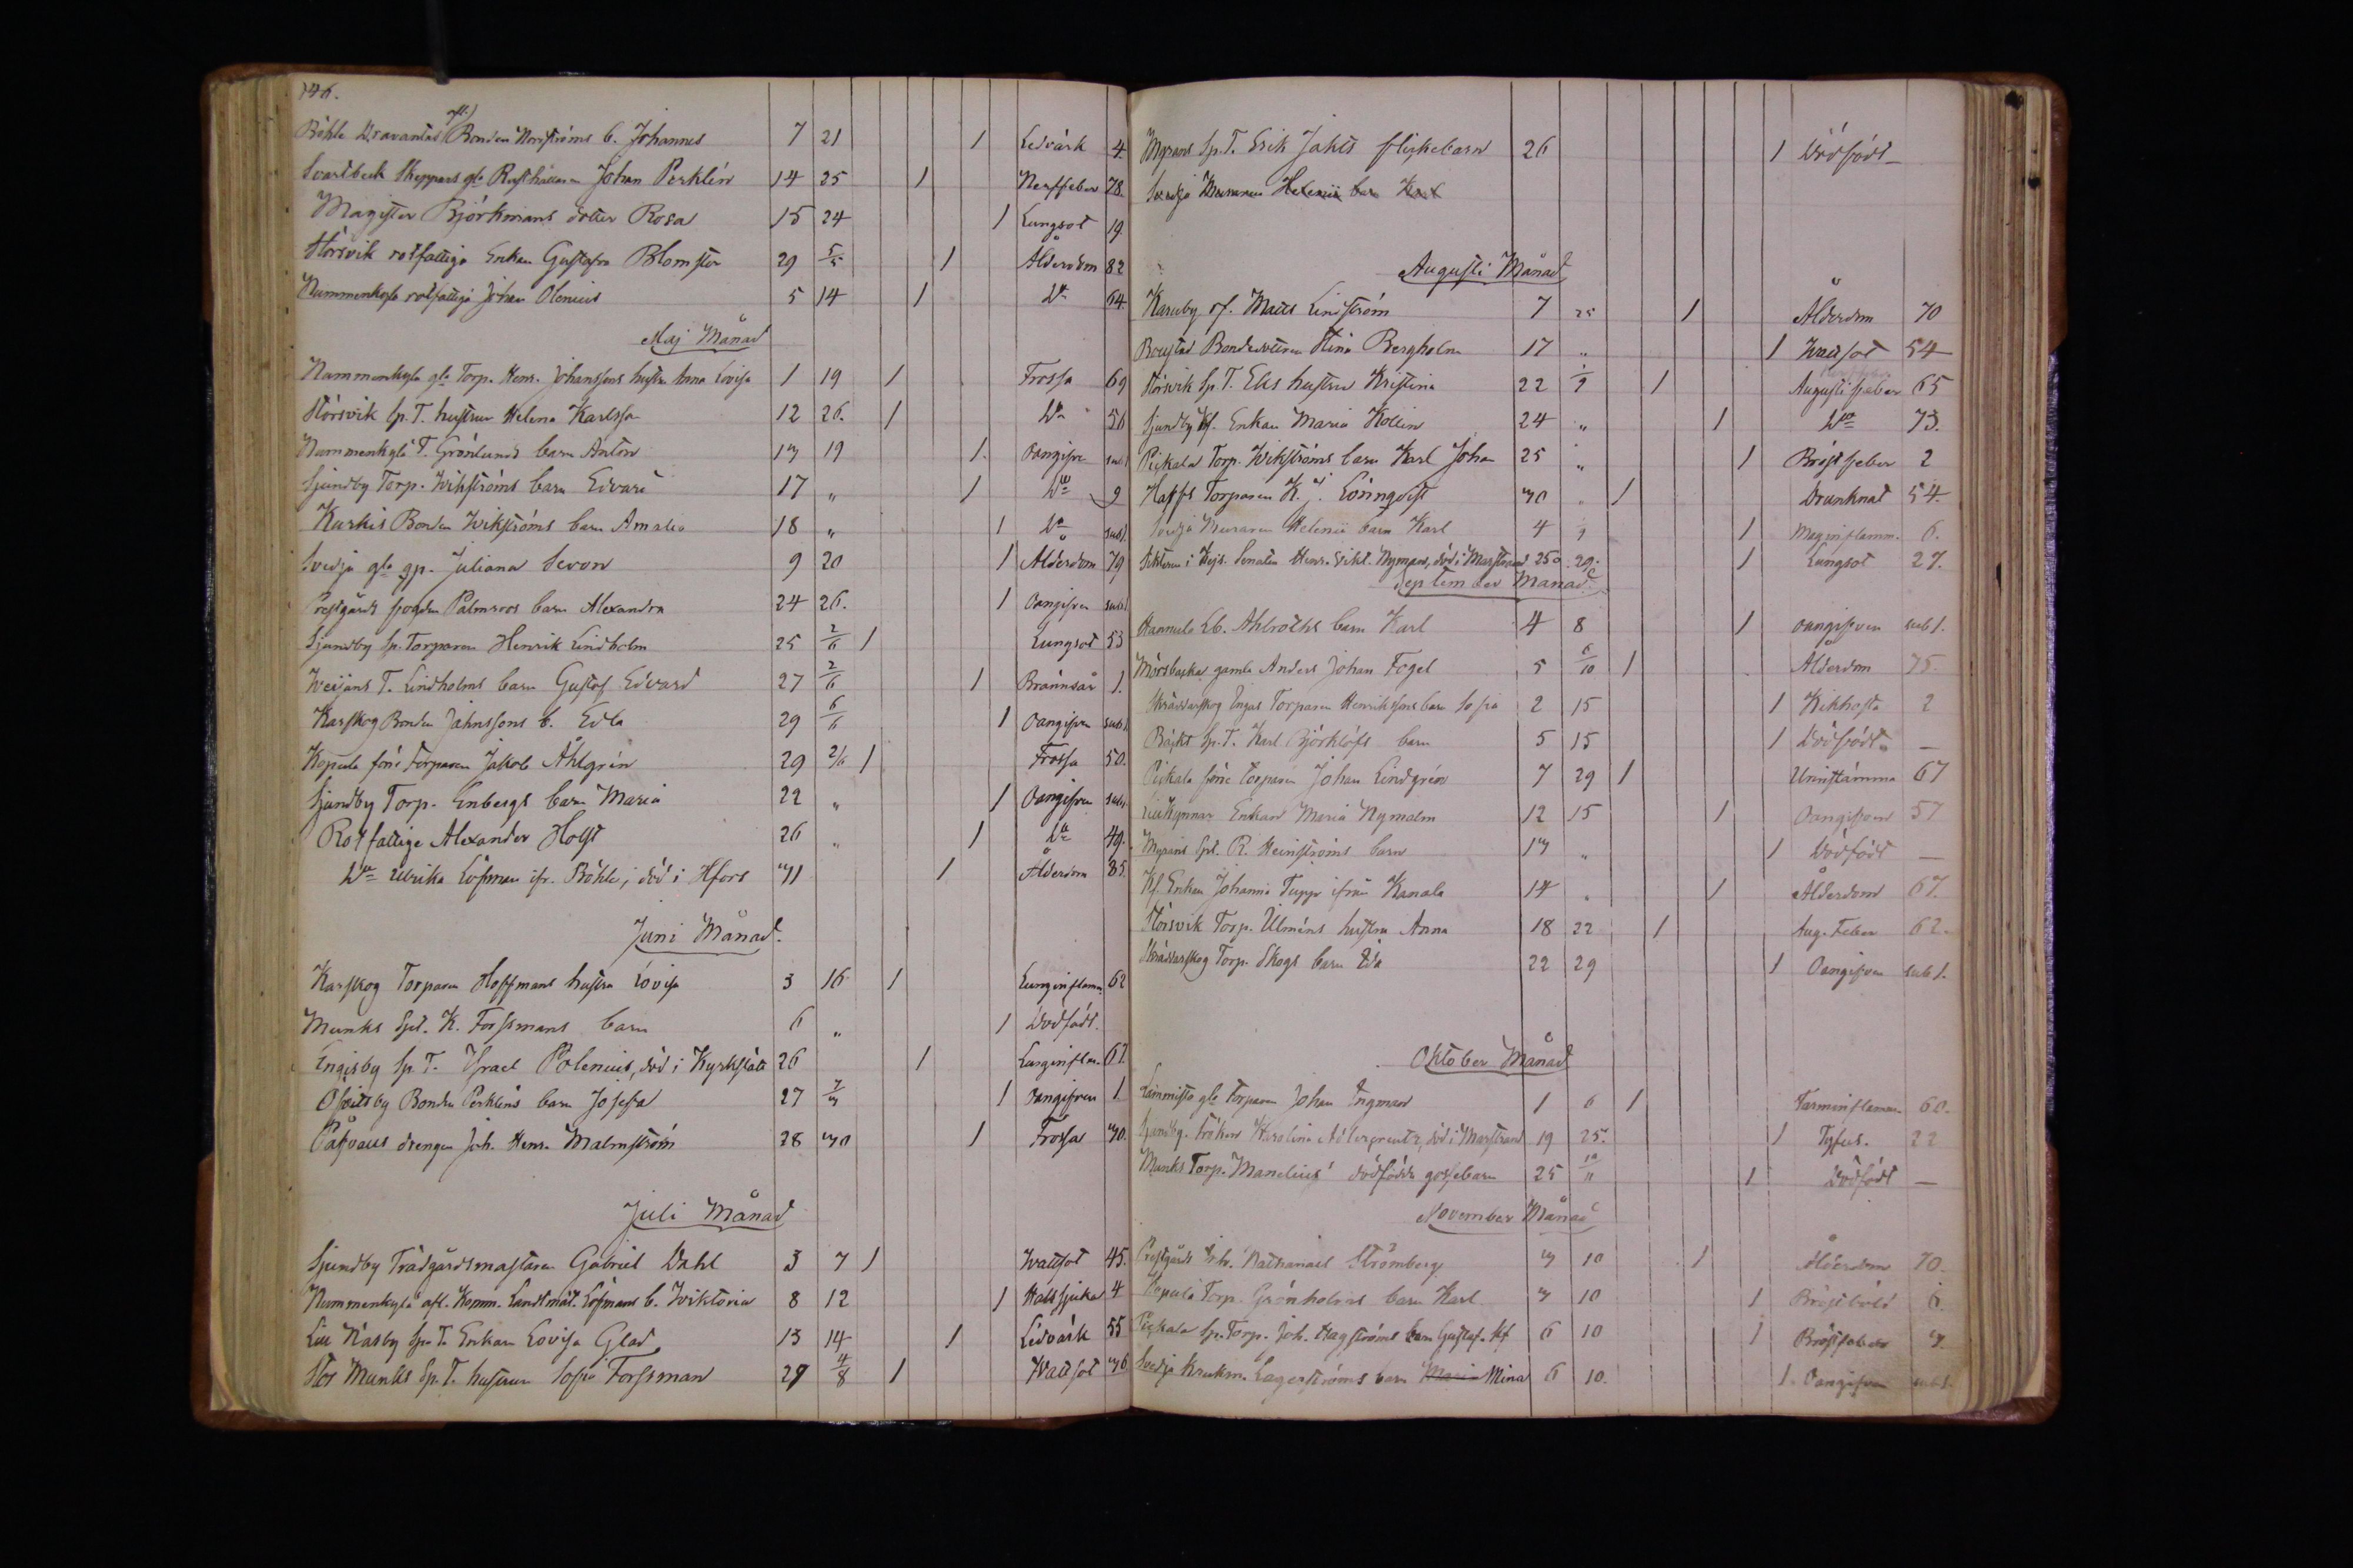 146.
Böhle Dravantas afl. Bonden Norrströms b. Johannes 7 21 1 Ledvärk 4.
Svartbeck Skeppars gle Rusthållaren Johan Perklén 14 25 1 Nerffeber 78.
Magister Björkmans dotter Rosa 15 24 1 Lungsot 19.
Störsvik rotfattiga Enkan Gustafva Blomster 29 5/5 1 Ålderdom 82
Nummenkyla rotfattiga Johan Olenius 5 14 1 Do 64.
Maj Månad
Nummenkyla gla Torp. Henr. Johanssons hustru Anna Lovisa 1 19 1 Frossa 69
Störsvik Sp. T. hustrun Helena Karlsson 12 26. 1 Do 56
Nummenkyla T. Grönlunds barn Anton 14 19 1. Oangifven sub 1
Sjundby Torp. Wikströms barn Edvard 17 „ 1 Do 9
Kurkis Bonden Wikströms barn Amalia 18 „ 1 Do sub 1.
Svidja gla gp. Juliana Sevon 9 20 1 Ålderdom 79
Prestgårds Palmroos barn Alexandra 24 26. 1 Oangifven sub 1
Sjundby Sp. Torparen Henrik Lindholm 25 2/6 1 Lungsot 53
Weijans T. Lindholms barn Gustaf Edvard 27 2/6 1 Brännsår 1.
Karskog Bonden Jahnssons b. Edla 29 6/6 1 Oangifven sub 1.
Kopula förre Torparen Jakob Åhlgrén 29 2/6 1 Frossa 50.
Sjundby Torp. Enbergs barn Maria 22 „ 1 Oangifven sub 1.
Rotfattige Alexander Holst 26 „ 1 Do 49.
Do Ulrika Löfman ifr. Böhle, död i Hfors 1 Ålderdom 85.
Juni Månad.
Karskog Torparen Hoffmans hustru Lovisa 3 16 1 Lunginflam. 62
Munks Spt. K. Forssmans barn 6 „ 1 Dödfödt.
Engisby Sp. T. Israel Polenius, död i Kyrkslätt 26 1 Lunginflam. 67.
Öfvitsby Bonden Perkléns barn Josefa 27 1 Oangifven 1
Påfvaus drengen Joh. Henr. Malmström 28 1 Frossa
Juli Månad
Sjundby Trädgårdsmästaren Gabriel Dahl 3 7 1 Wattsot 45.
Nummenkyla afl. Komm. Landtmät. Löfmans b. Wiktoria 8 12 1 Halssjuka 4
Lill Näsby Sp. T. Enkan Lovisa Glad 13 14 1 Ledvärk 55
Stor Munks Sp. T. hustrun Sofia Forssman 29 4/8 1 Wattsot
Myrans Sp. T. Erik Jahls flickebarn 26 1 Dödfödt
Svidja Muraren Helenii barn Karl
Augusti Månad
Karuby rf. Matts Lindström 7 25 1 Ålderdom 70
Bondedottren Stina Bergholm 17 „ 1 Wattsot 54
Störsvik Sp. T. Eks hustru Kristina 22 1/9 1 Augustifeber 65
Sjundby Kf. Enkan Maria Kollin 24 „ 1 Do 73.
Pickala Torp. Wikströms barn Karl Johan 25 „ 1 Bröstfeber 2
Haffs Torparen K. J. Lönnqvist 1 Drunknat 54.
Svidja Muraren Helenii barn Karl 4 9 1 Maginflamm. 6.
i Kejs. Senaten Henr. Wikt. Nyman, död i Marstrand 25 29. 1 Lungsot 27.
September Månad.
Hannula Lb. Ahlroths barn Karl 4 8 1 oangifven sub 1.
Mörsbacka gamla Anders Johan Fogel 5 6/10 1 Ålderdom 75.
Skräddarskog Ingas Torparen Henrikssons barn Sofia 2 15 1 Kikhosta 2
Bäckt Sp. T. Karl Björklöfs barn 5 15 1 Dödfödt. —
Pickala förre torparen Johan Lindgrén 7 29 1 Urinstämma 67
Enkan Maria Nymalm 12 15 1 Oangifven 57
Myrans Spt. R. Heinströms barn 14 „ 1 Dödfödt —
Kf. Enkan Johanna Tupp ifrån Kanala 14 „ 1 Ålderdom 67.
Störsvik Torp. Ulméns hustru Anna 18 22 1 Aug. Feber 62.
Skräddarskog Torp. Skogs barn Ida 22 29 1 Oangifven sub 1.
Oktober Månad
Lammisto gle Torparen Johan Ingman 1 6 1 Tarminflamm. 60.
Sjundby fröken Karolina Adlercreutz, död i Marstrand 19 25. 1 Tyfus. 22
Munks Torp. Manelius' dödfödda gossebarn 25 10/11 1 Dödfödt —
November Månad
Prestgårds Nathanael Strömberg 10 1 Ålderdom 70.
Kopula Torp. Grönholms barn Karl 10 1 Bröstböld 6.
Pickala Sp. Torp. Joh. Hagströms barn Gustaf. Kf 6 10 1 Bröstfeber
Svidja Krukm. Lagerströms barn Maria Mina 6 10. 1. Oangifven sub 1.